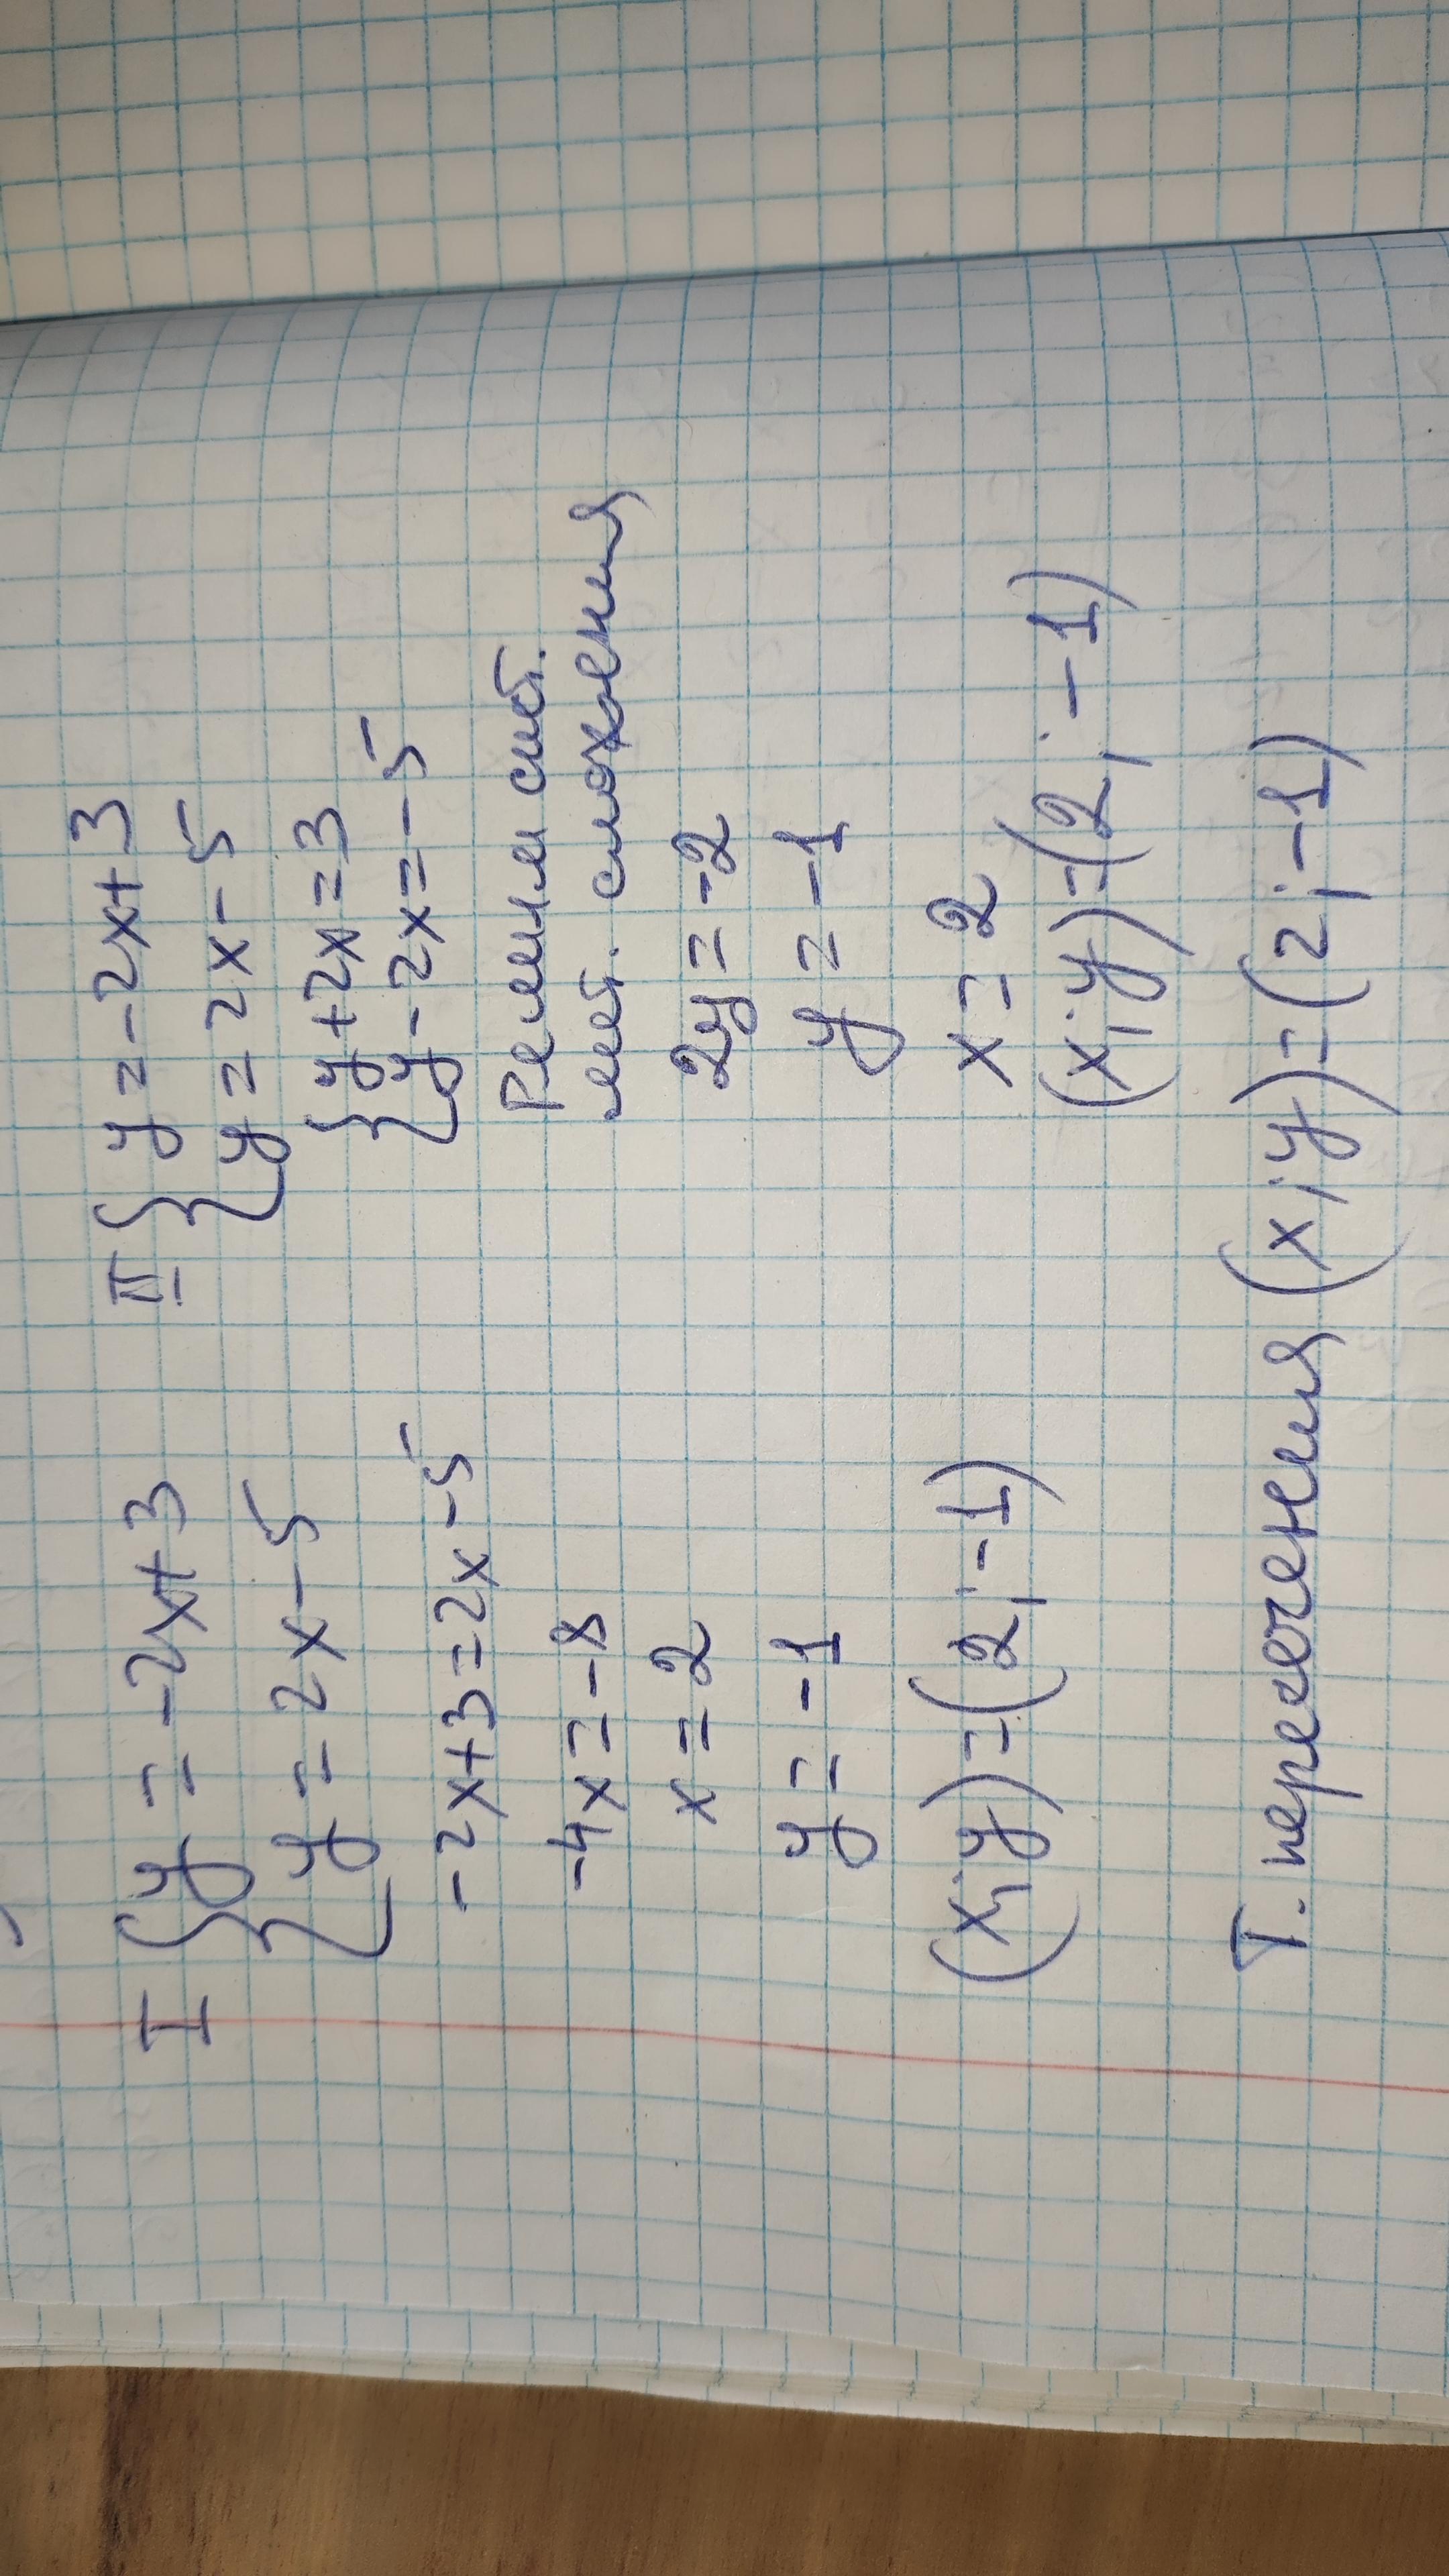 I { y = -2x+3
y = 2x-5
-2x+3=2x-5
-4x=-8
x=2
y=-1
(x;y)=(2;-1)
II { y=-2x+3
y=2x-5
{ y+2x=3
y-2x=-5
Решим сист.
мет. сложения
2y=-2
y=-1
x=2
(x;y)=(2;-1)
Т. пересечения (x;y)=(2;-1)